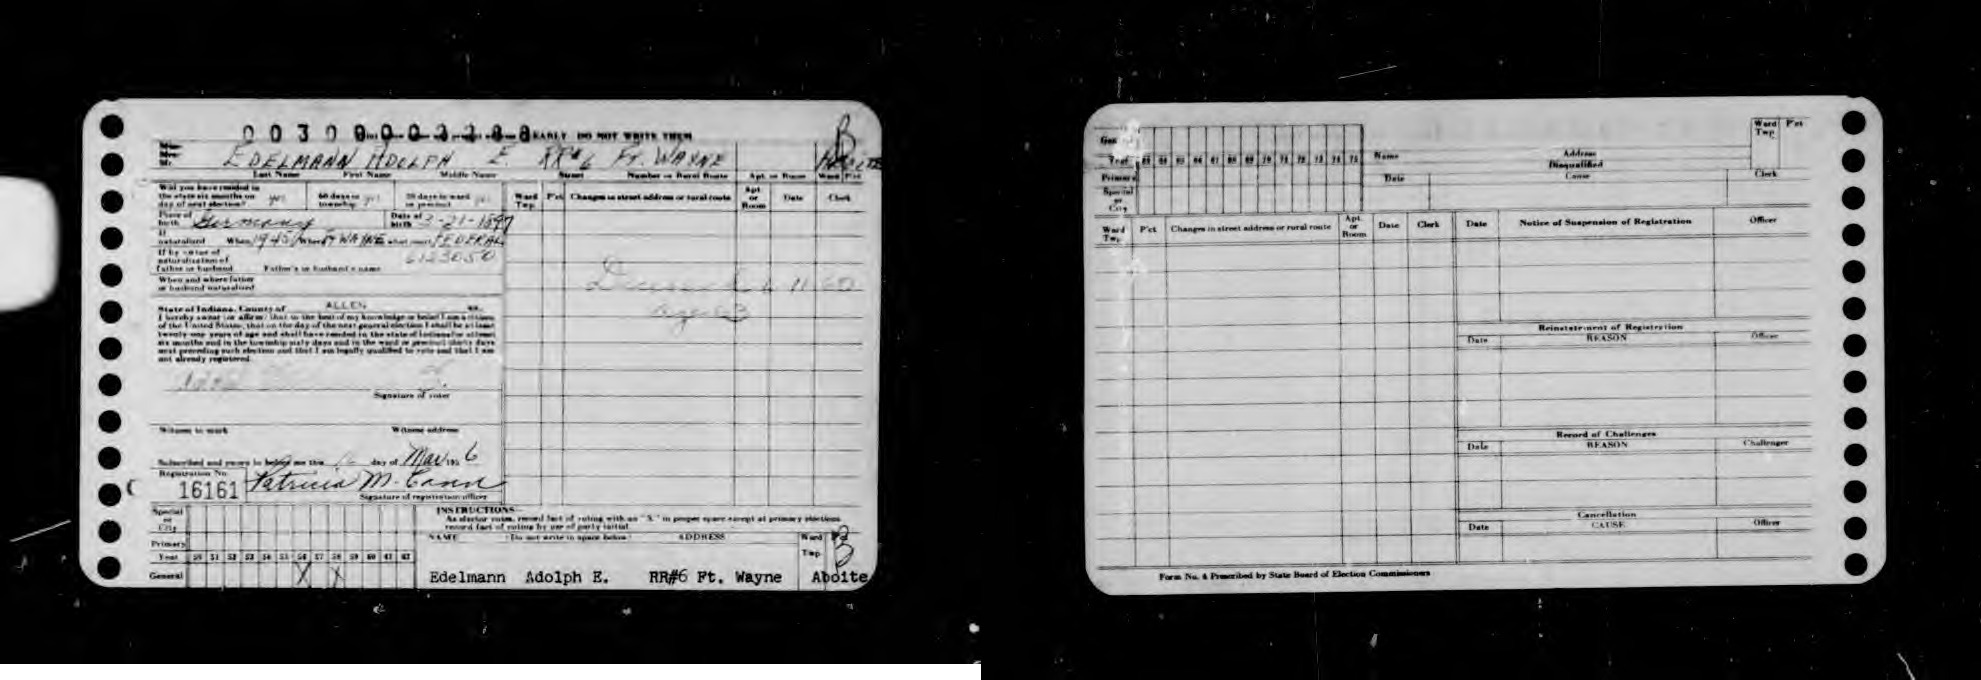 EARLY DO NOT WRITE THEM
B
EDELMANN ADOLPH E. RR#6 FT. WAYNE
Last Name First Name Middle Name Street Number or Rural Route Apt. or Room Ward P'ct
Will you have resided in the state six months on day of next election? yes 60 days in township yes 30 days in ward or precinct yes
Place of birth Germany Date of birth 3-21-1897
If naturalized When 1945 Where FT WAYNE what court FEDERAL
6123050
If by virtue of naturalization of father or husband Father's or husband's name
When and where father or husband naturalized
State of Indiana, County of ALLEN ss.
I hereby swear (or affirm) that to the best of my knowledge or belief I am a citizen
of the United States, that on the day of the next general election I shall be at least
twenty-one years of age and shall have resided in the state of Indiana for at least
six months and in the township sixty days and in the ward or precinct thirty days
next preceding such election and that I am legally qualified to vote and that I am
not already registered.
Signature of voter
Witness to mark Witness address
Subscribed and sworn to before me this day of Mar 195 6
Registration No.
16161 Patricia M. Cann
Signature of registration officer
Ward Twp. P'ct Changes in street address or rural route Apt. or Room Date Clerk
Deceased 6 11 60
age 63
INSTRUCTIONS
As elector votes, record fact of voting with an "X" in proper space except at primary elections
record fact of voting by use of party initial.
Special or City
Primary
Year 50 51 52 53 54 55 56 57 58 59 60 61 62
General X X
NAME (Do not write in space below) ADDRESS Ward Twp. P'ct
B
Edelmann Adolph E. RR#6 Ft. Wayne Aboite
General
Year 63 64 65 66 67 68 69 70 71 72 73 74 75
Primary
Special or City
Name Address Ward Twp. P'ct
Disqualified
Date Cause Clerk
Ward Twp. P'ct Changes in street address or rural route Apt. or Room Date Clerk
Date Notice of Suspension of Registration Officer
Reinstatement of Registration
Date REASON Officer
Record of Challenges
Date REASON Challenger
Cancellation
Date CAUSE Officer
Form No. 4 Prescribed by State Board of Election Commissioners